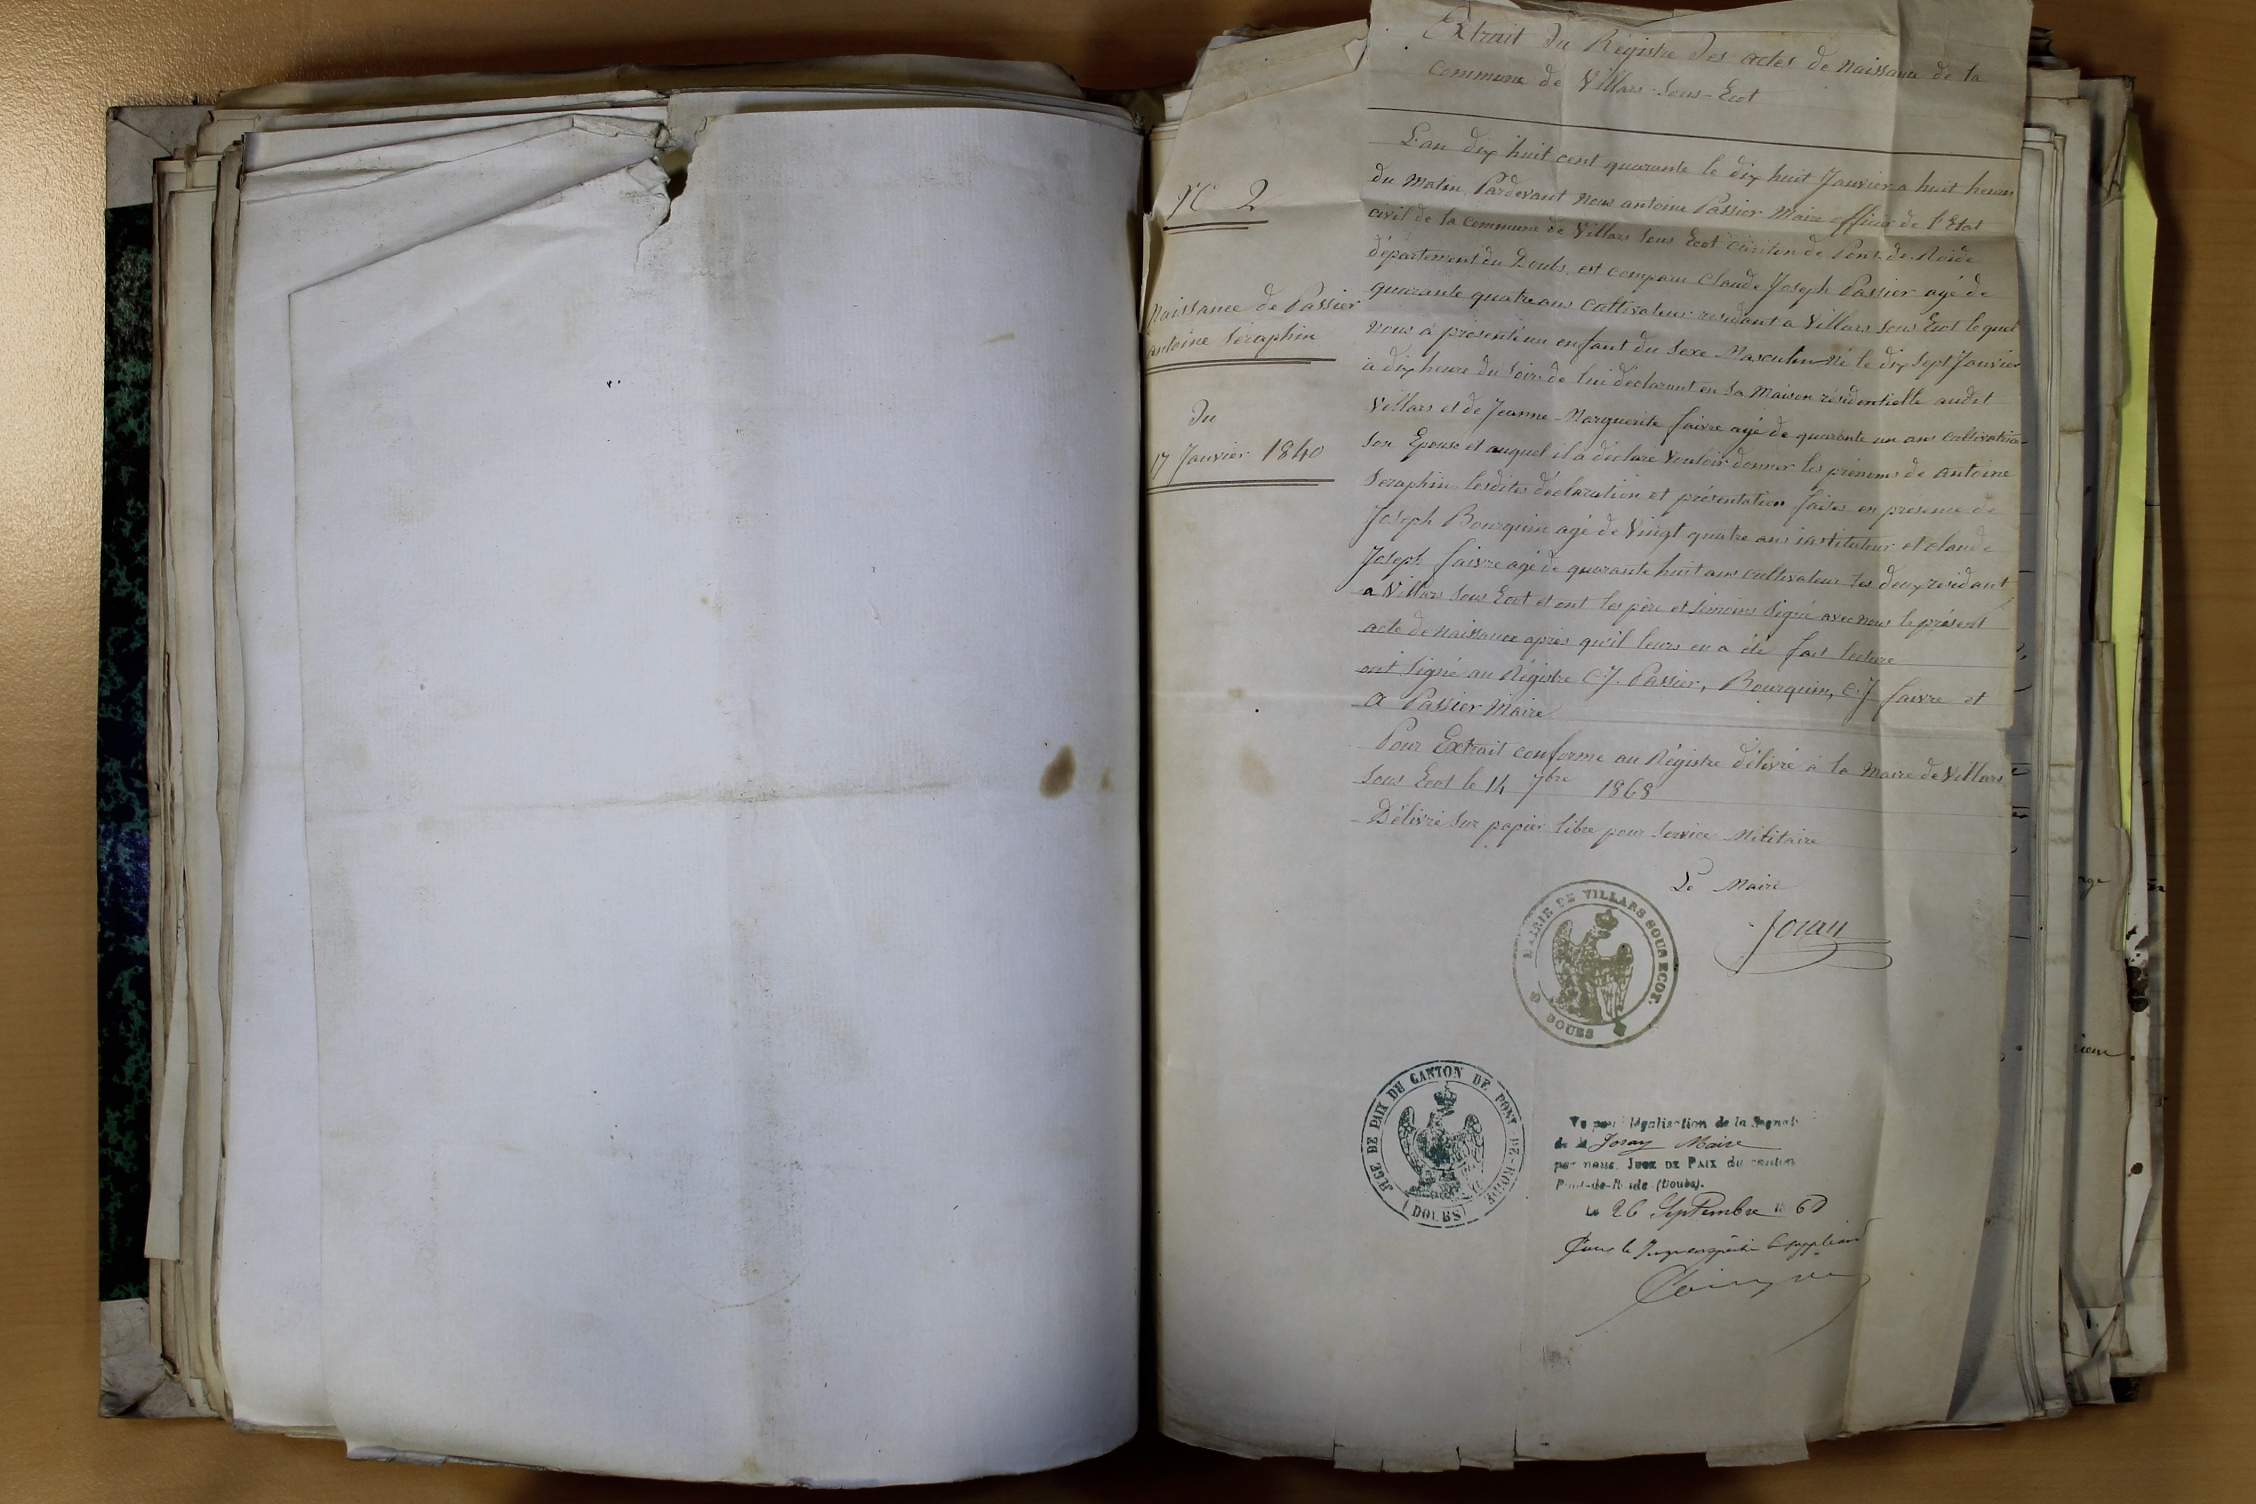 Extrait du Régistre des actes de Naissance de la
Commune de Villars-Sous-Ecot
N° 2
Naissance de Passier
antoine Séraphin
Du
17 Janvier 1840
L'an dix huit cent quarante le dix huit Janvier a huit heures
du Matin, Pardevant Nous antoine Passier Maire officier de l'Etat
civil de la Commune de Villars Sous Ecot canton de Pont-de-Roide
département du Doubs, est comparu Claude Joseph Passier agé de
quarante quatre ans Cultivateur residant a Villars Sous Ecot lequel
Nous a présenté un enfant du Sexe Masculin Né le dix Sept Janvier
à dix heure du Soir de lui déclarant en Sa Maison résidentielle audit
Villars et de Jeanne-Marguerite faivre agé de quarante un ans Cultivatrice
Son Epouse et auquel il a déclaré Vouloir donner les prénoms de antoine
Seraphin lesdites déclaration et présentation faites en présence de
Joseph Bourquin agé de Vingt quatre ans instituteur et claude
Joseph faivre agé de quarante huit ans cultivateur les deux residant
a Villars Sous Ecot et ont les père et témoins Signé avec nous le présent
acte de Naissance après qu'il leurs en a été fait lecture
ont Signé au Régistre C.J. Passier, Bourquin, C.J faivre et
A Passier Maire
Pour Extrait conforme au Régistre délivré à la Mairie de Villars
Sous Ecot le 14 7bre 1868
Délivré Sur papier libre pour Service Militaire
Le Maire
Joray
MAIRIE DE VILLARS SOUS ECOT.
DOUBS
JUGE DE PAIX DU CANTON DE PONT-DE-ROIDE
(DOUBS)
Vu pour légalisation de la Signat
de M Joray Maire
par nous, JUGE DE PAIX du canton
Pont-de-Roide (Doubs).
Le 26 Septembre 18